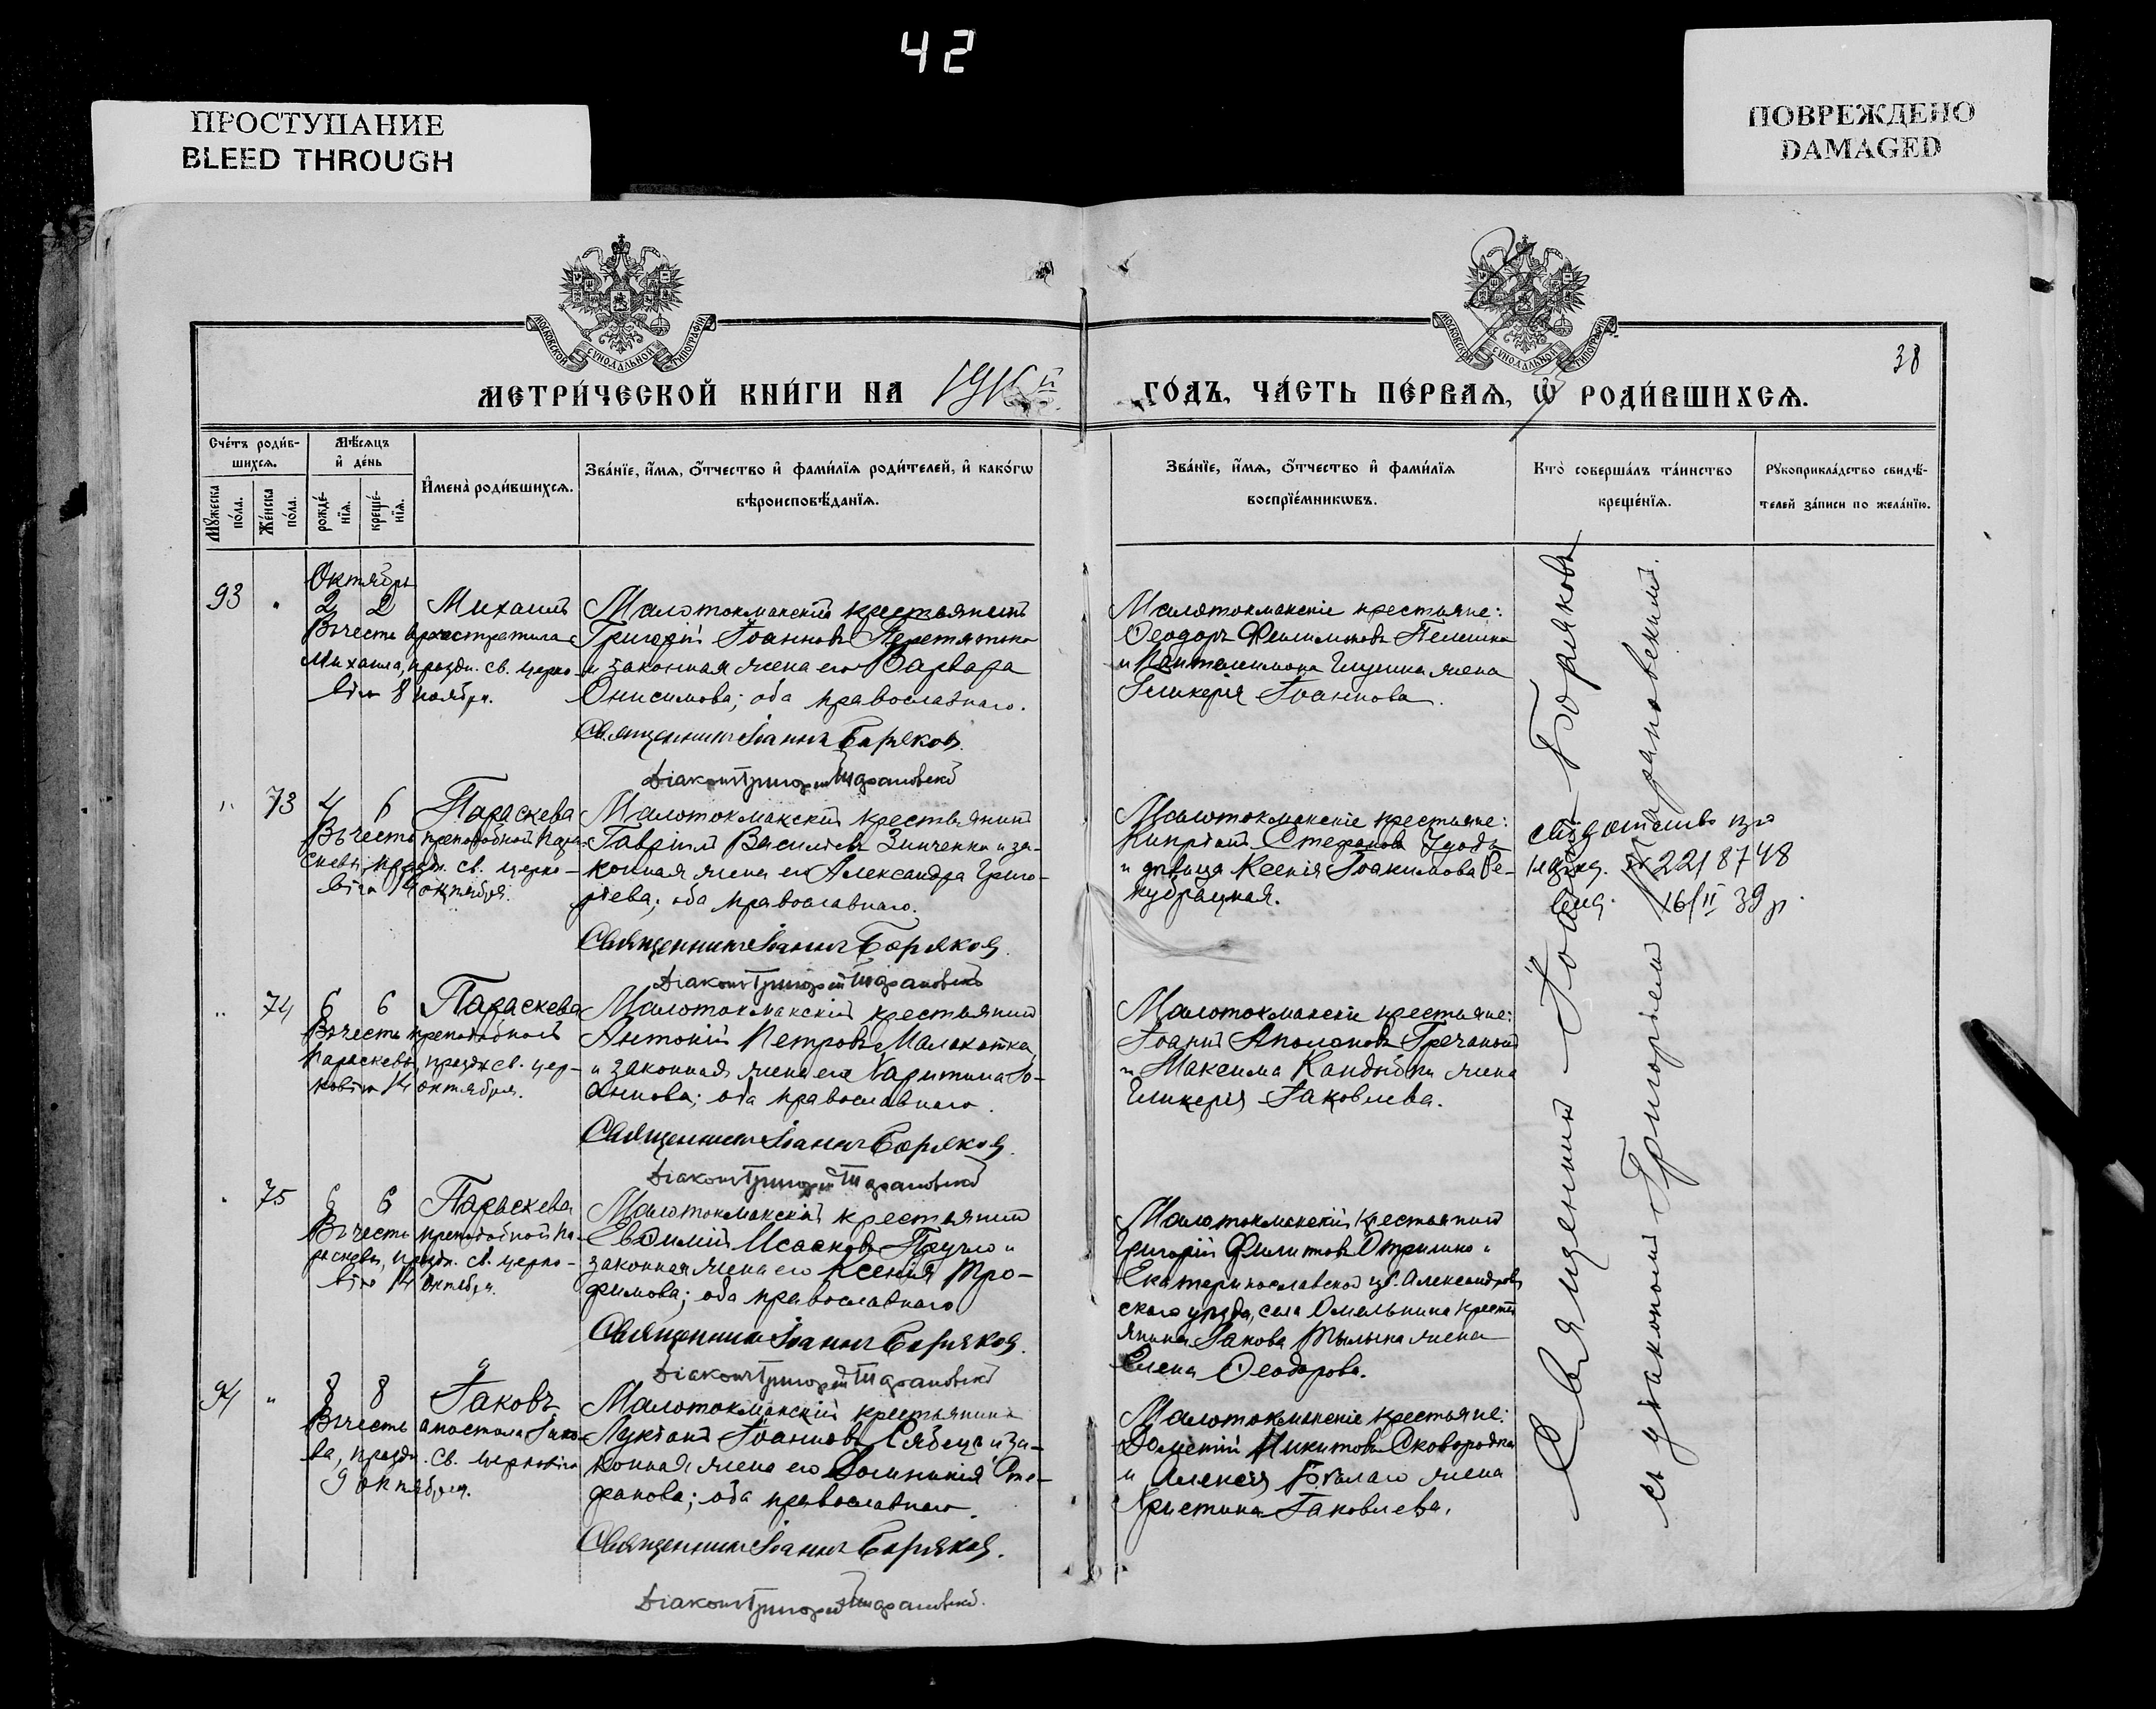 42
ПРОСТУПАНИЕ
BLEED THROUGH
ПОВРЕЖДЕНО
DAMAGED
МОСКОВСКОЙ СѴНОДАЛЬНОЙ ТИПОГРАФІИ
МОСКОВСКОЙ СѴНОДАЛЬНОЙ ТИПОГРАФІИ
38
МЕТРИ́ЧЕСКОЙ КНИ́ГИ НА
ГО́ДЪ, ЧА́СТЬ ПЕ́РВАѦ, Ѡ҆ РОДИ́ВШИХСѦ.
Сче́тъ роди́в-
шихсѧ.
Мꙋжеска по́ла.
Же́нска по́ла.
Мѣ́сѧцъ
и҆ де́нь
рожде́-
нїѧ.
креще́-
нїѧ.
И҆мена̀ роди́вшихсѧ.
Зва́нїе, и҆́мѧ, ѻ҆́тчество и҆ фами́лїѧ роди́телей, и҆ како́гѡ
вѣроисповѣ́данїѧ.
Зва́нїе, и҆́мѧ, ѻ҆́тчество и҆ фами́лїѧ
воспрїе́мникѡвъ.
Кто̀ соверша́лъ та́инство
креще́нїѧ.
Рꙋкоприкла́дство свидѣ́-
телей за́писи по жела́нїю.
Октябрь
93 " 2 2 Михаилъ
Въ честь Архистратига
Михаила, праздн. св. церко-
вію 8 ноября.
Малотокмакскій крестьянинъ
Григорій Іоанновъ Перетятько
и законная жена его Варвара
Онисимова; оба православнаго.
Священникъ Іоаннъ Боряковъ.
Діаконъ Григорій Шарановскій
Малотокмакскіе крестьяне:
Ѳеодоръ
и Пантелимона жена
Гликерія Іоаннова.
" 73 4 6 Параскева
Въ честь преподобной Пара-
скевы, праздн. св. церко-
вію 14 октября.
Малотокмакскій крестьянинъ
Гавріилъ Васильевъ Зинченко и за-
конная жена его Александра Григо-
ріева; оба православнаго.
Священникъ Іоаннъ Боряковъ.
Діаконъ Григорій Шарановскій
Малотокмакскіе крестьяне:
Кипріанъ Стефановъ
и дѣвица Ксенія Іоакимова Ре-
кубрацкая.
№ 2218748
16/II 39 р.
" 74 6 6 Параскева
Въ честь преподобной
Параскевы, праздн. св. цер-
ковію 14 октября.
Малотокмакскій крестьянинъ
Антоній Петровъ Малахатка
и законная жена его Харитина Іо-
аннова; оба православнаго.
Священникъ Іоаннъ Боряковъ.
Діаконъ Григорій Шарановскій
Малотокмакскіе крестьяне:
Іоаннъ Гречаный
и Максима жена
Гликерія Іаковлева.
" 75 6 6 Параскева
Въ честь преподобной Па-
раскевы, праздн. св. церко-
вію 14 октября.
Малотокмакскій крестьянинъ
Евѳимій Исааковъ и
законная жена его Ксенія Тро-
фимова; оба православнаго
Священникъ Іоаннъ Боряковъ.
Діаконъ Григорій Шарановскій
Малотокмакскій крестьянинъ
Григорій Филиповъ и
Екатеринославской губ. Александров
скаго уѣзда, села Омельника кресть
янина Іакова жена
Елена Ѳеодорова.
94 " 8 8 Іаковъ
Въ честь апостола Іако-
ва, праздн. св. церковію
9 октября.
Малотокмакскій крестьянинъ
Лукіанъ Іоанновъ и за-
конная жена его Домникія Сте-
фанова; оба православнаго.
Священникъ Іоаннъ Боряковъ.
Діаконъ Григорій Шарановскій.
Малотокмакскіе крестьяне:
Дометій Никитовъ Сковородка
и Алексѣя жена
Христина Іаковлева.
Священникъ Іоаннъ Боряковъ
съ діакономъ Григоріемъ Шарановскимъ.